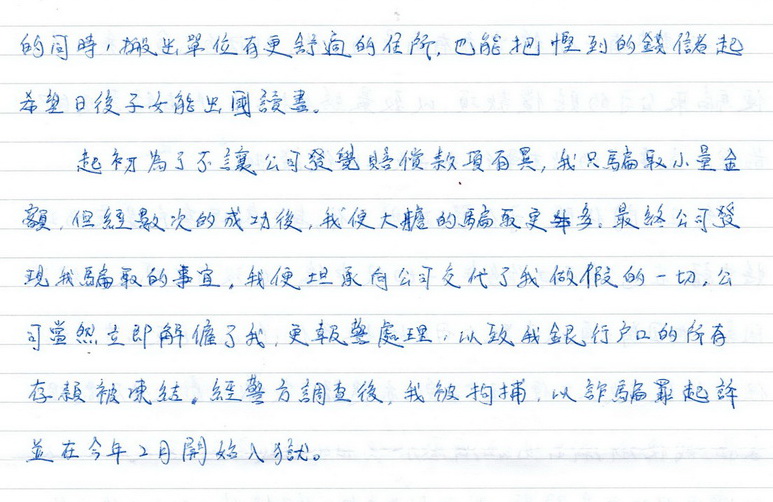 的同時，搬出單位有更舒適的住所，也能把慳到的錢儲起
希望日後子女能出國讀書。
起初為了不讓公司發覺賠償款項有異，我只騙取小量金
額，但經數次的成功後，我便大膽的騙取更多。最終公司發
現我騙取的事宜，我便坦承向公司交代了我做假的一切，公
司當然立即解僱了我，更報警處理，以致我銀行戶口的所有
存款被凍結。經警方調查後，我被拘捕，以詐騙罪起訴
並在今年2月開始入獄。